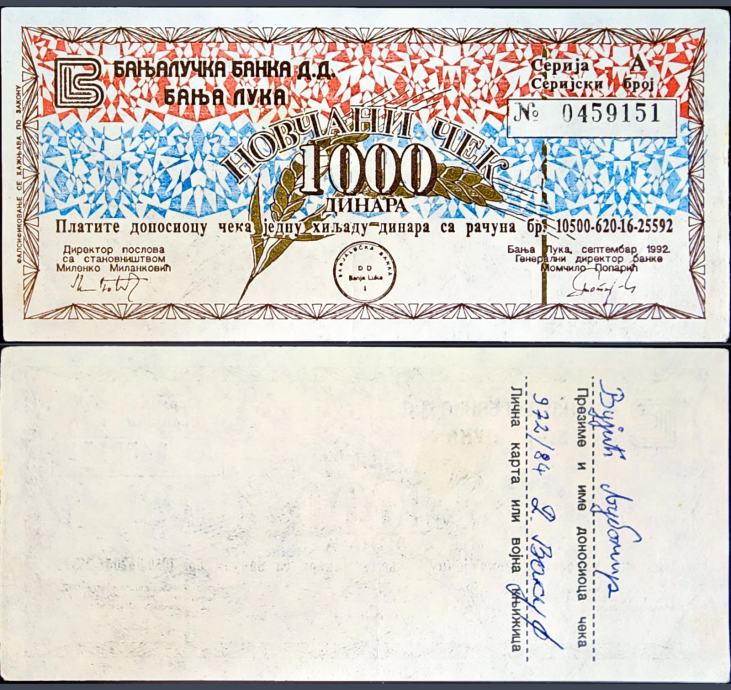 БАЊАЛУЧКА БАНКА Д.Д.
БАЊА ЛУКА
Серија А
Серијски број
№ 0459151
НОВЧАНИ ЧЕК
1000
ДИНАРА
Платите доносиоцу чека једну хиљаду динара са рачуна бр. 10500-620-16-25592
Директор послова
са становништвом
Миленко Миланковић
Бања Лука, септембар 1992.
Генерални директор банке
Момчило Попарић
БАЊАЛУЧКА БАНКА
D D
Banja Luka
1
ФАЛСИФИКОВАЊЕ СЕ КАЖЊАВА ПО ЗАКОНУ
Вујић Љубомир
Презиме и име доносиоца чека
972/84 Д. Вакуф
Лична карта или војна књижица